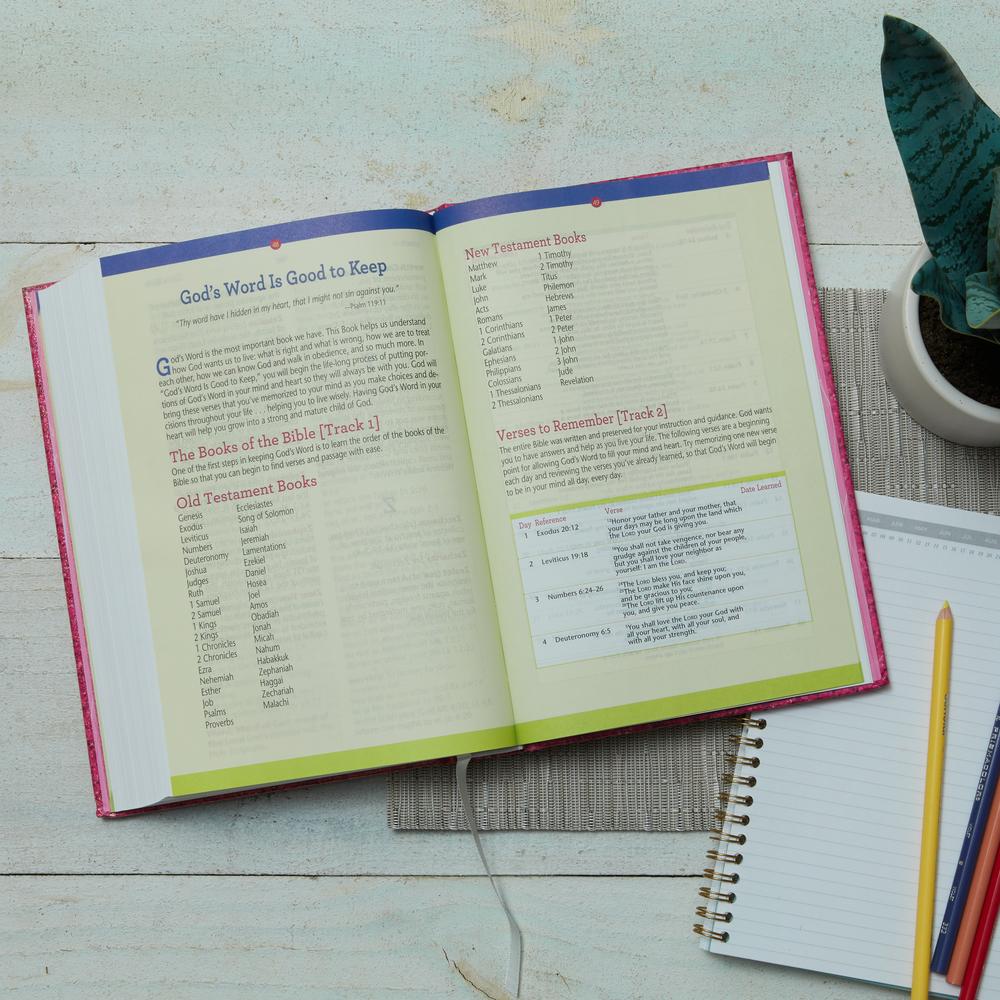 48
God's Word Is Good to Keep
"Thy word have I hidden in my heart, that I might not sin against you."
—Psalm 119:11
God's Word is the most important book we have. This Book helps us understand
how God wants us to live: what is right and what is wrong, how we are to treat
each other, how we can know God and walk in obedience, and so much more. In
"God's Word Is Good to Keep," you will begin the life-long process of putting por-
tions of God's Word in your mind and heart so they will always be with you. God will
bring these verses that you've memorized to your mind as you make choices and de-
cisions throughout your life . . . helping you to live wisely. Having God's Word in your
heart will help you grow into a strong and mature child of God.
The Books of the Bible [Track 1]
One of the first steps in keeping God's Word is to learn the order of the books of the
Bible so that you can begin to find verses and passage with ease.
Old Testament Books
Genesis
Exodus
Leviticus
Numbers
Deuteronomy
Joshua
Judges
Ruth
1 Samuel
2 Samuel
1 Kings
2 Kings
1 Chronicles
2 Chronicles
Ezra
Nehemiah
Esther
Job
Psalms
Proverbs
Ecclesiastes
Song of Solomon
Isaiah
Jeremiah
Lamentations
Ezekiel
Daniel
Hosea
Joel
Amos
Obadiah
Jonah
Micah
Nahum
Habakkuk
Zephaniah
Haggai
Zechariah
Malachi
49
New Testament Books
Matthew
Mark
Luke
John
Acts
Romans
1 Corinthians
2 Corinthians
Galatians
Ephesians
Philippians
Colossians
1 Thessalonians
2 Thessalonians
1 Timothy
2 Timothy
Titus
Philemon
Hebrews
James
1 Peter
2 Peter
1 John
2 John
3 John
Jude
Revelation
Verses to Remember [Track 2]
The entire Bible was written and preserved for your instruction and guidance. God wants
you to have answers and help as you live your life. The following verses are a beginning
point for allowing God's Word to fill your mind and heart. Try memorizing one new verse
each day and reviewing the verses you've already learned, so that God's Word will begin
to be in your mind all day, every day.
Day Reference Verse Date Learned
1 Exodus 20:12 12Honor your father and your mother, that
your days may be long upon the land which
the LORD your God is giving you.
2 Leviticus 19:18 18You shall not take vengeance, nor bear any
grudge against the children of your people,
but you shall love your neighbor as
yourself: I am the LORD.
3 Numbers 6:24–26 24The LORD bless you, and keep you;
25The LORD make His face shine upon you,
and be gracious to you;
26The LORD lift up His countenance upon
you, and give you peace.
4 Deuteronomy 6:5 5You shall love the LORD your God with
all your heart, with all your soul, and
with all your strength.
MAR APR MAY JUN JUL AUG
PRISMACOLOR